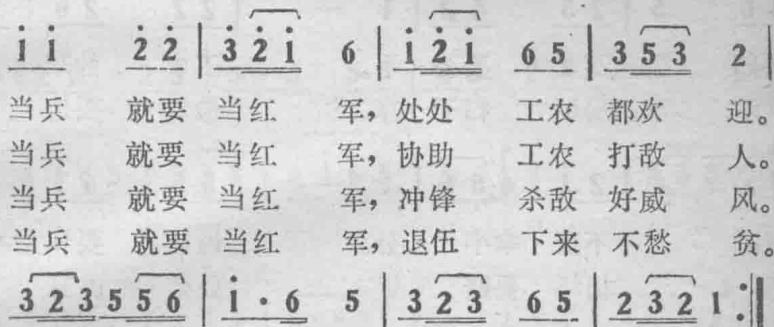 i i 2 2 | 3 2 i 6 | i 2 i 6 5 | 3 5 3 2 |
当兵 就要 当红 军，处处 工农 都欢 迎。
当兵 就要 当红 军，协助 工农 打敌 人。
当兵 就要 当红 军，冲锋 杀敌 好威 风。
当兵 就要 当红 军，退伍 下来 不愁 贫。
3 2 3 5 5 6 | i · 6 5 | 3 2 3 6 5 | 2 3 2 1 :||